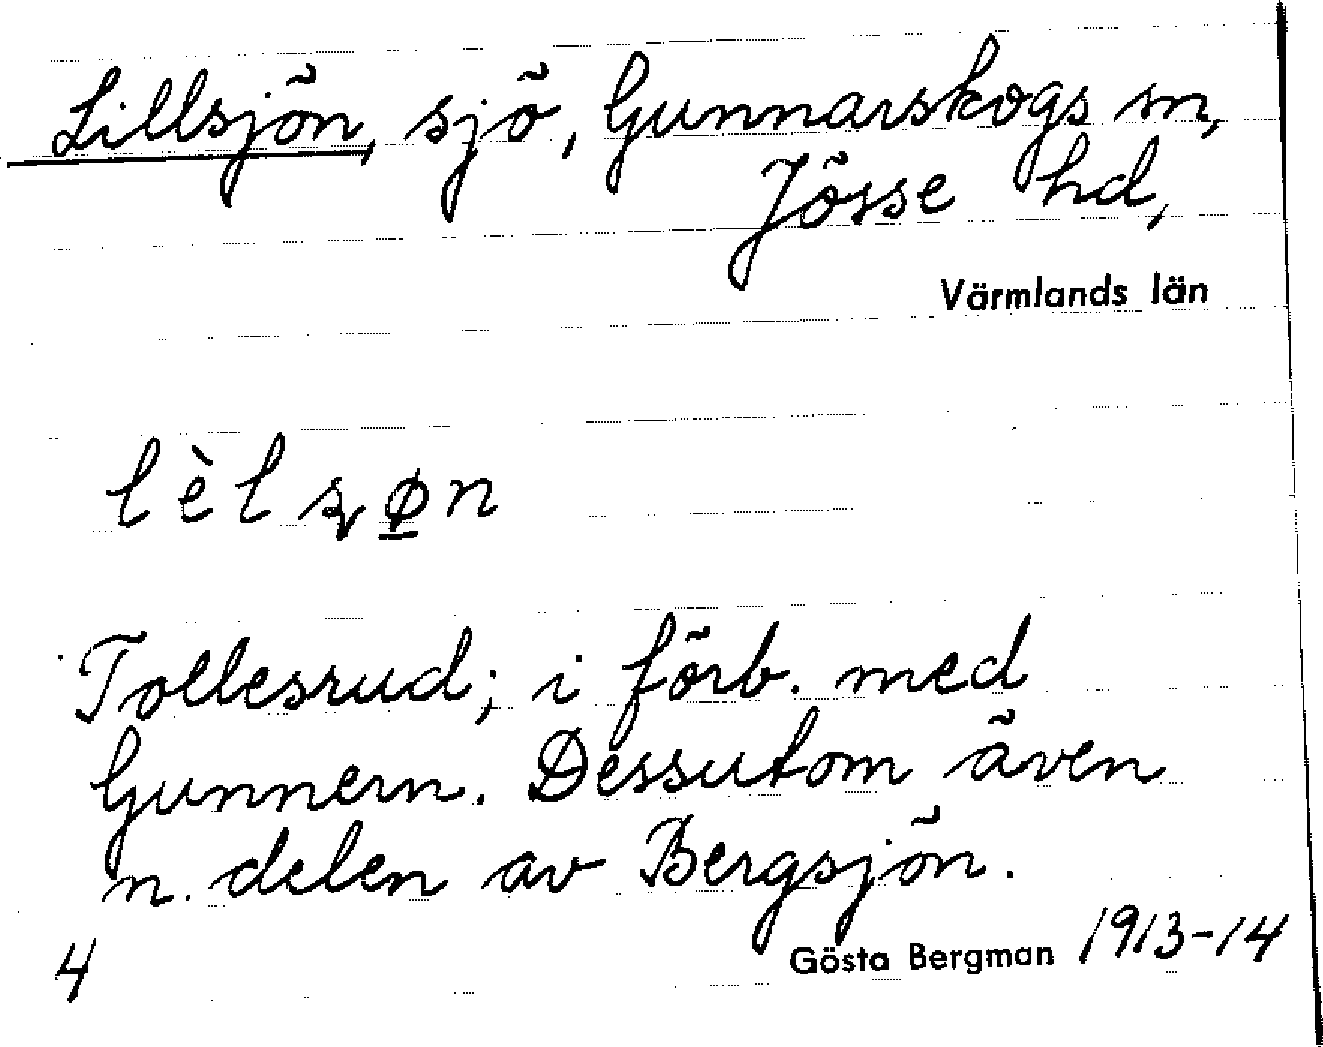 Lillsjön, sjö, Gunnarskogs sn,
Jösse hd,
Värmlands län
lèlʂø̠n
Tollesrud; i förb. med
Gunnern. Dessutom även
n. delen av Bergsjön.
4 Gösta Bergman 1913-14